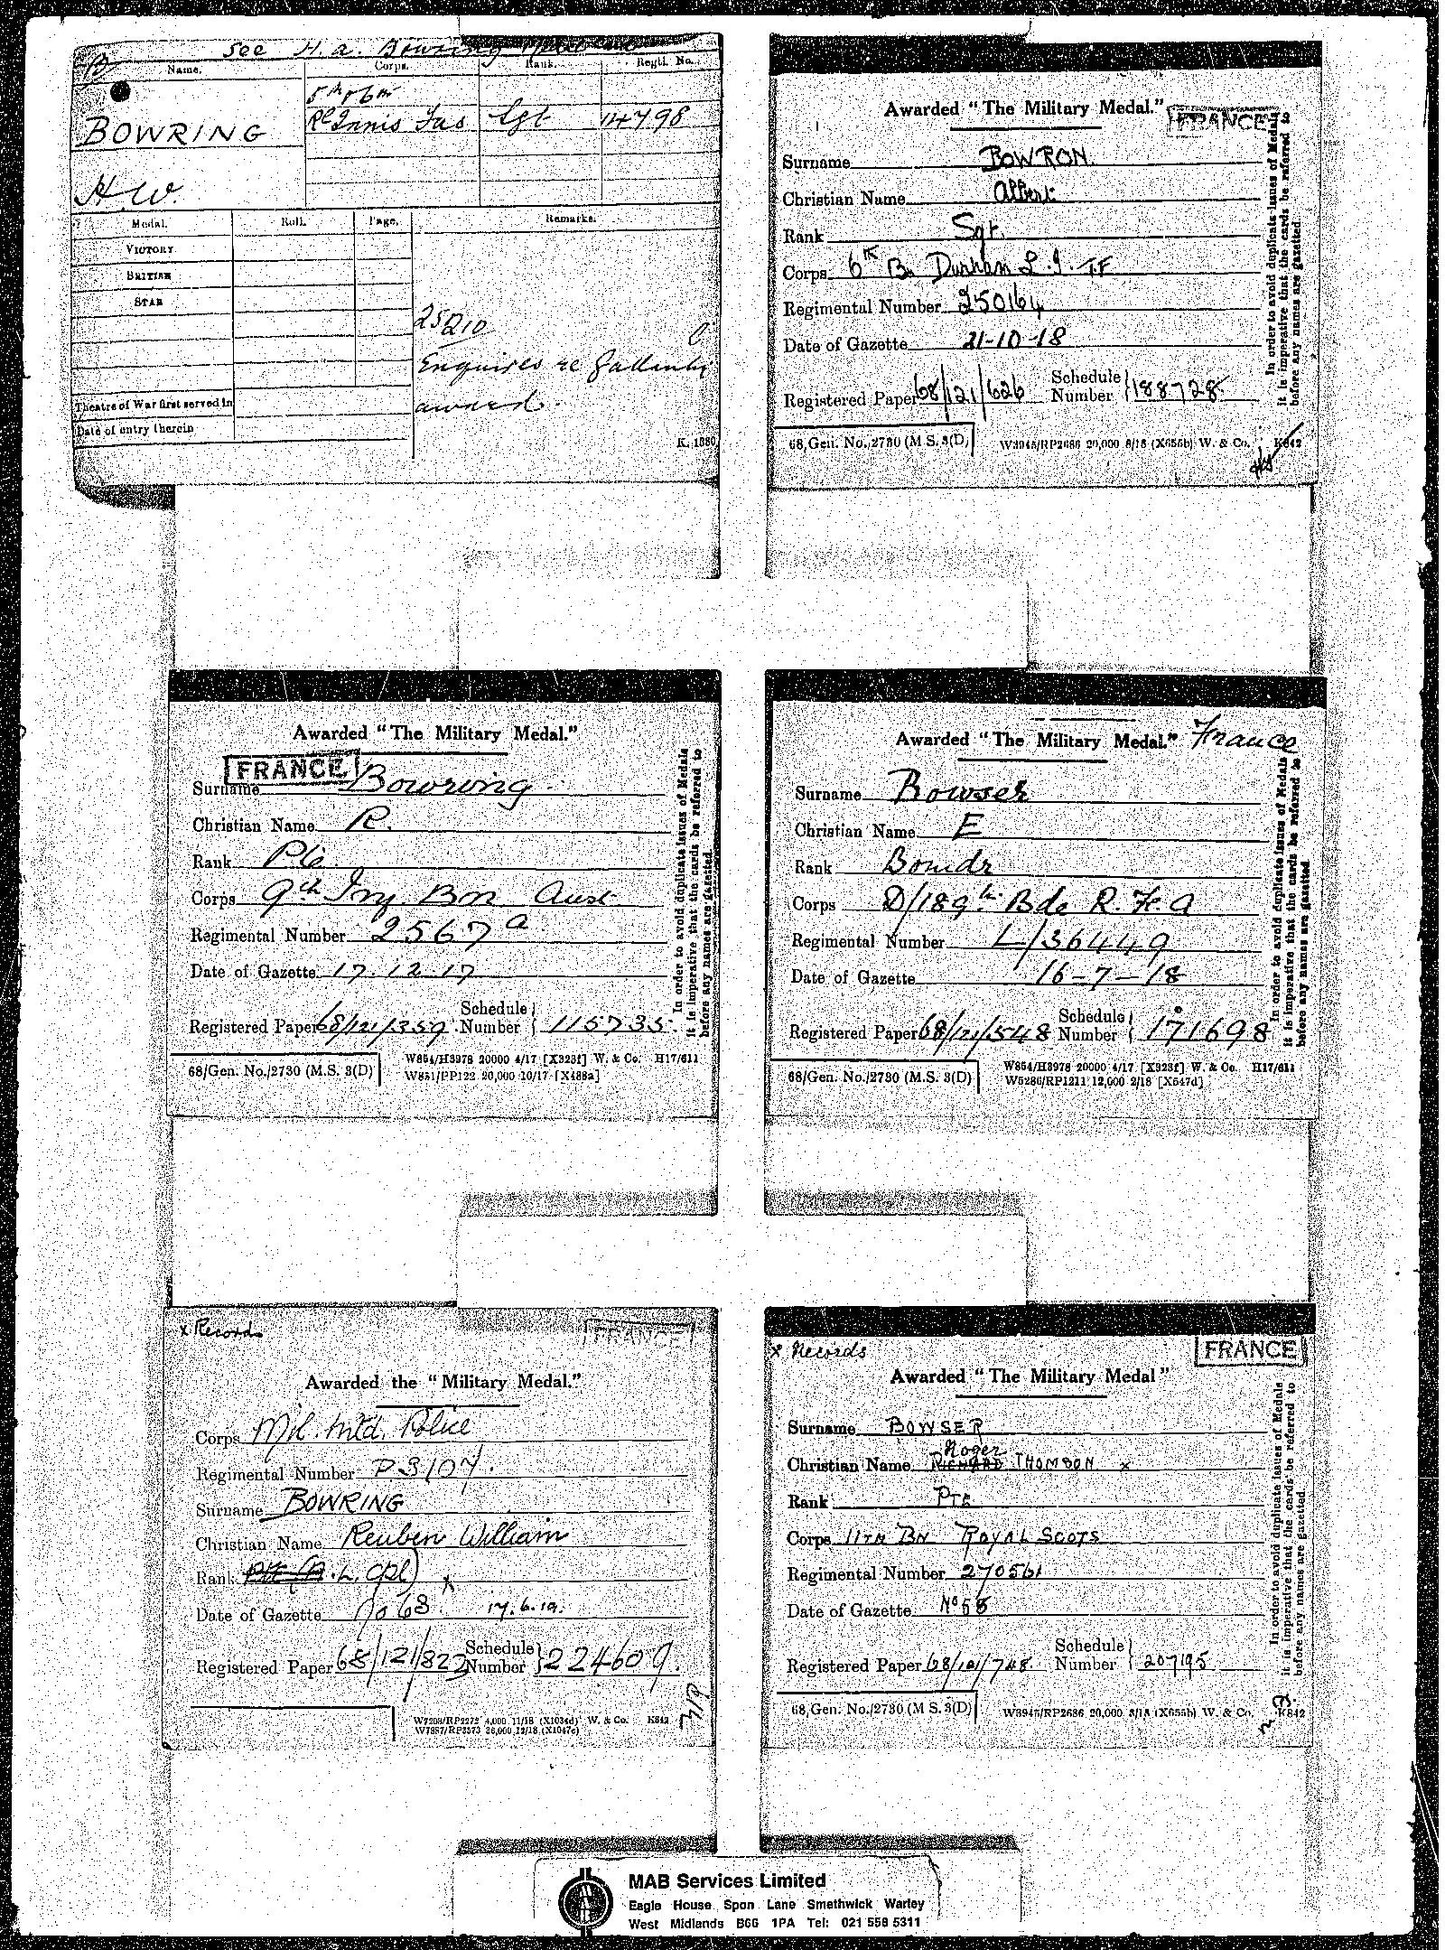 See H. A. Bowring
Name. Corps. Rank. Regtl. No.
BOWRING
H.W.
5th & 6th
Rl Innis Fus Sgt 14798
Medal. Roll. Page. Remarks.
VICTORY
BRITISH
STAR
Theatre of War first served in
Date of entry therein
Enquires re gallantry
award.
K. 1380
Awarded "The Military Medal."
FRANCE
Surname BOWRON
Christian Name Albert
Rank Sgt.
Corps 6th Bn Durham L.I. T.F
Regimental Number 250164
Date of Gazette 21-10-18
Registered Paper 68/121/626 Schedule Number 188728
68/Gen. No./2730 (M.S. 3(D) W3945/RP2686 20,000 8/18 (X655b) W. & Co. K642
In order to avoid duplicate issues of Medals
it is imperative that the cards be referred to
before any names are gazetted
Awarded "The Military Medal."
FRANCE
Surname Bowring
Christian Name R.
Rank Pte
Corps 9th Iny Bn Aust.
Regimental Number 2567 a
Date of Gazette 17.12.17
Registered Paper 68/121/359 Schedule Number 115735
68/Gen. No./2730 (M.S. 3(D) W854/H3978 20000 4/17 [X323f] W. & Co. H17/611
W851/PP122 20,000 10/17 [X488a]
In order to avoid duplicate issues of Medals
it is imperative that the cards be referred to
before any names are gazetted.
Awarded "The Military Medal." France
Surname Bowser
Christian Name E
Rank Bomdr
Corps D/189th Bde R.F.A
Regimental Number L/36449
Date of Gazette 16-7-18
Registered Paper 68/121/548 Schedule Number 171698
68/Gen. No./2730 (M.S. 3(D) W854/H3978 20000 4/17 [X323f] W. & Co. H17/611
W5286/RP1211 12,000 2/18 [X547d]
In order to avoid duplicate issues of Medals
it is imperative that the cards be referred to
before any names are gazetted.
x Records
FRANCE
Awarded the "Military Medal."
Corps Mil. Mtd. Police
Regimental Number P3107.
Surname BOWRING
Christian Name Reuben William
Rank L. Cpl) x
Date of Gazette No 68 17.6.19.
Registered Paper 68/121/822 Schedule Number 224609.
W7208/RP2272 4,000 11/18 (X1034d) W. & Co. K642
W7887/RP3573 26,000 12/18 (X1047e)
x Records
FRANCE
Awarded "The Military Medal"
Surname BOWSER
Roger
Christian Name RICHARD THOMSON x
Rank PTE
Corps 11TH BN ROYAL SCOTS
Regimental Number 270561
Date of Gazette No 58
Registered Paper 68/121/748. Schedule Number 207195
68/Gen. No./2730 (M.S. 3(D) W3945/RP2686 20,000 8/18 (X655b) W. & Co. K642
In order to avoid duplicate issues of Medals
it is imperative that the cards be referred to
before any names are gazetted.
MAB Services Limited
Eagle House Spon Lane Smethwick Warley
West Midlands B66 1PA Tel: 021 558 5311